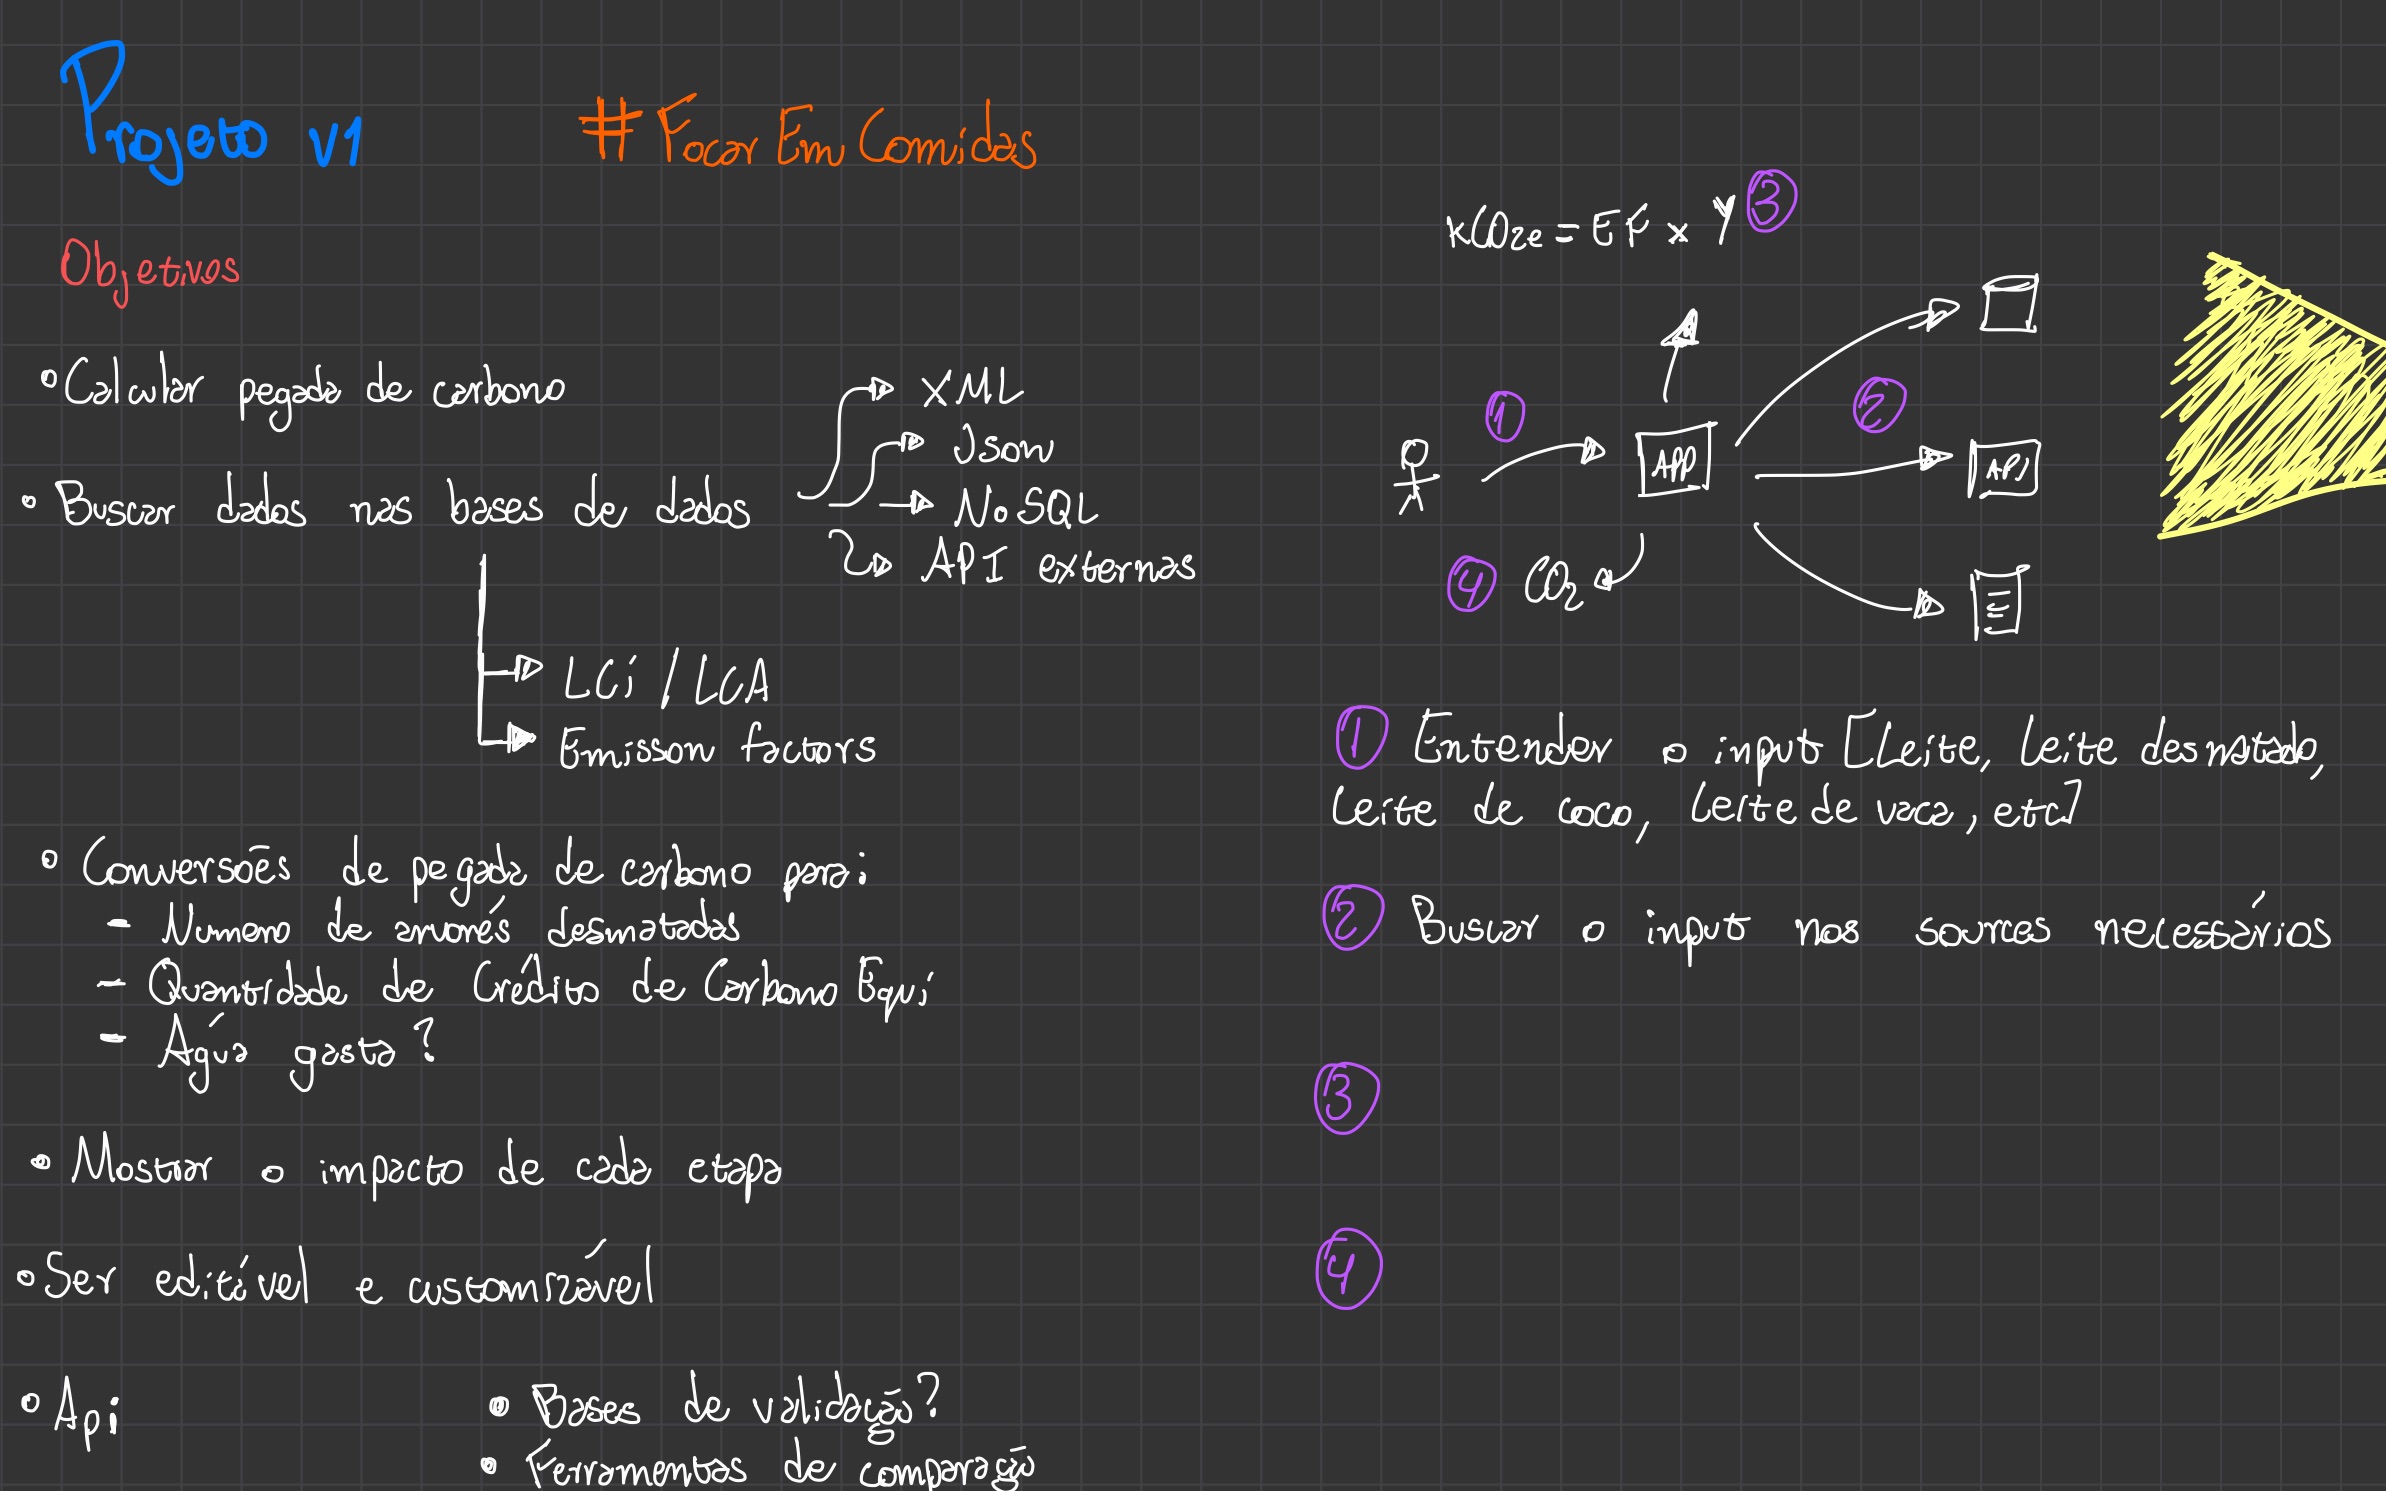 Projeto v1
#FocarEmComidas
Objetivos
Calcular pegada de carbono
Buscar dados nas bases de dados
XML
Json
NoSQL
API externas
LCi / LCA
Emisson factors
Conversões de pegada de carbono para:
- Numero de arvorés desmatadas
- Quantidade de Crédito de Carbono Equi
- Agúa gasta?
Mostrar o impacto de cada etapa
Ser editável e customizável
Api
Bases de validação?
Ferramentas de comparação
kCO2e = EF x Y 3
1
APP
2
API
4 CO2
1 Entender o input [Leite, leite desnatado,
leite de coco, leite de vaca, etc]
2 Buscar o input nos sources necessários
3
4